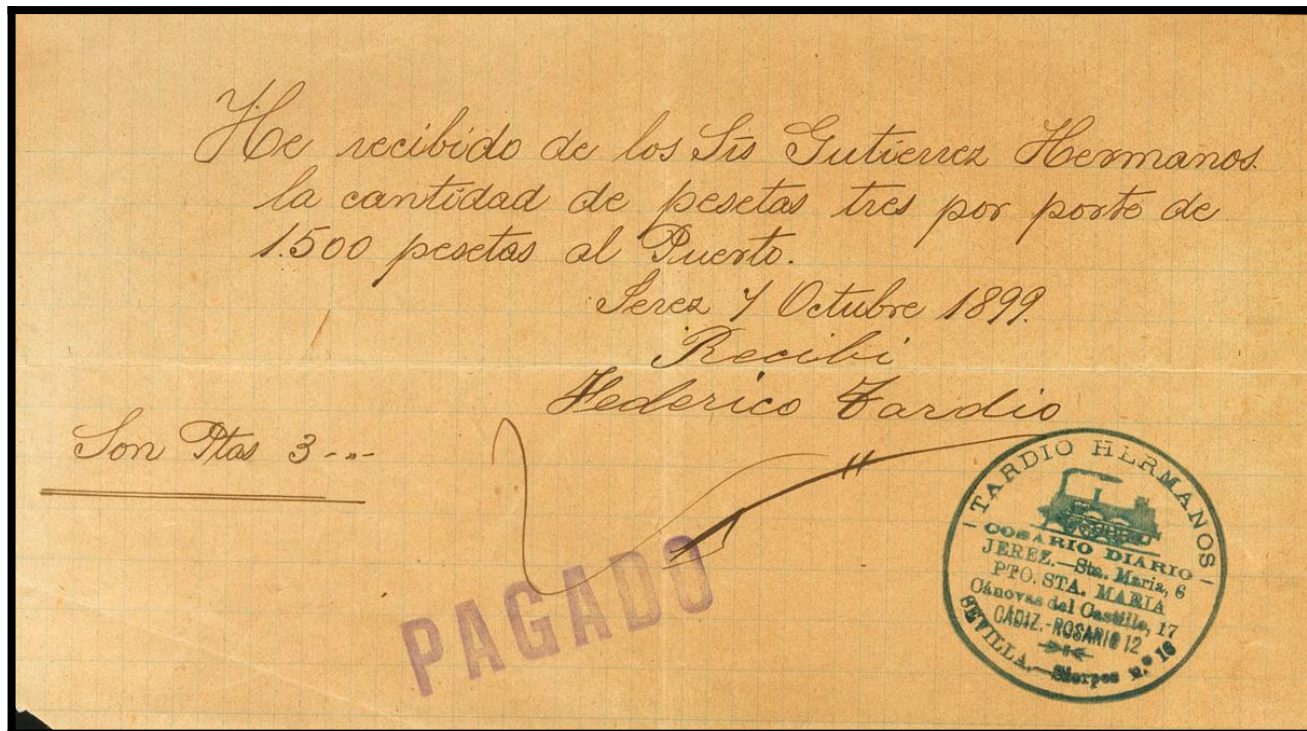 He recibido de los Srs Gutierrez Hermanos.
la cantidad de pesetas tres por porte de
1.500 pesetas al Puerto.
Jerez 7 Octubre 1899.
Recibi
Federico Tardio
Son Ptas 3-"-
PAGADO
- TARDIO HERMANOS -
COSARIO DIARIO
JEREZ.-Sta. Maria, 6
PTO. STA. MARIA
Cánovas del Castillo, 17
CADIZ.-ROSARIO 12
SEVILLA.-Sierpes n.º 16